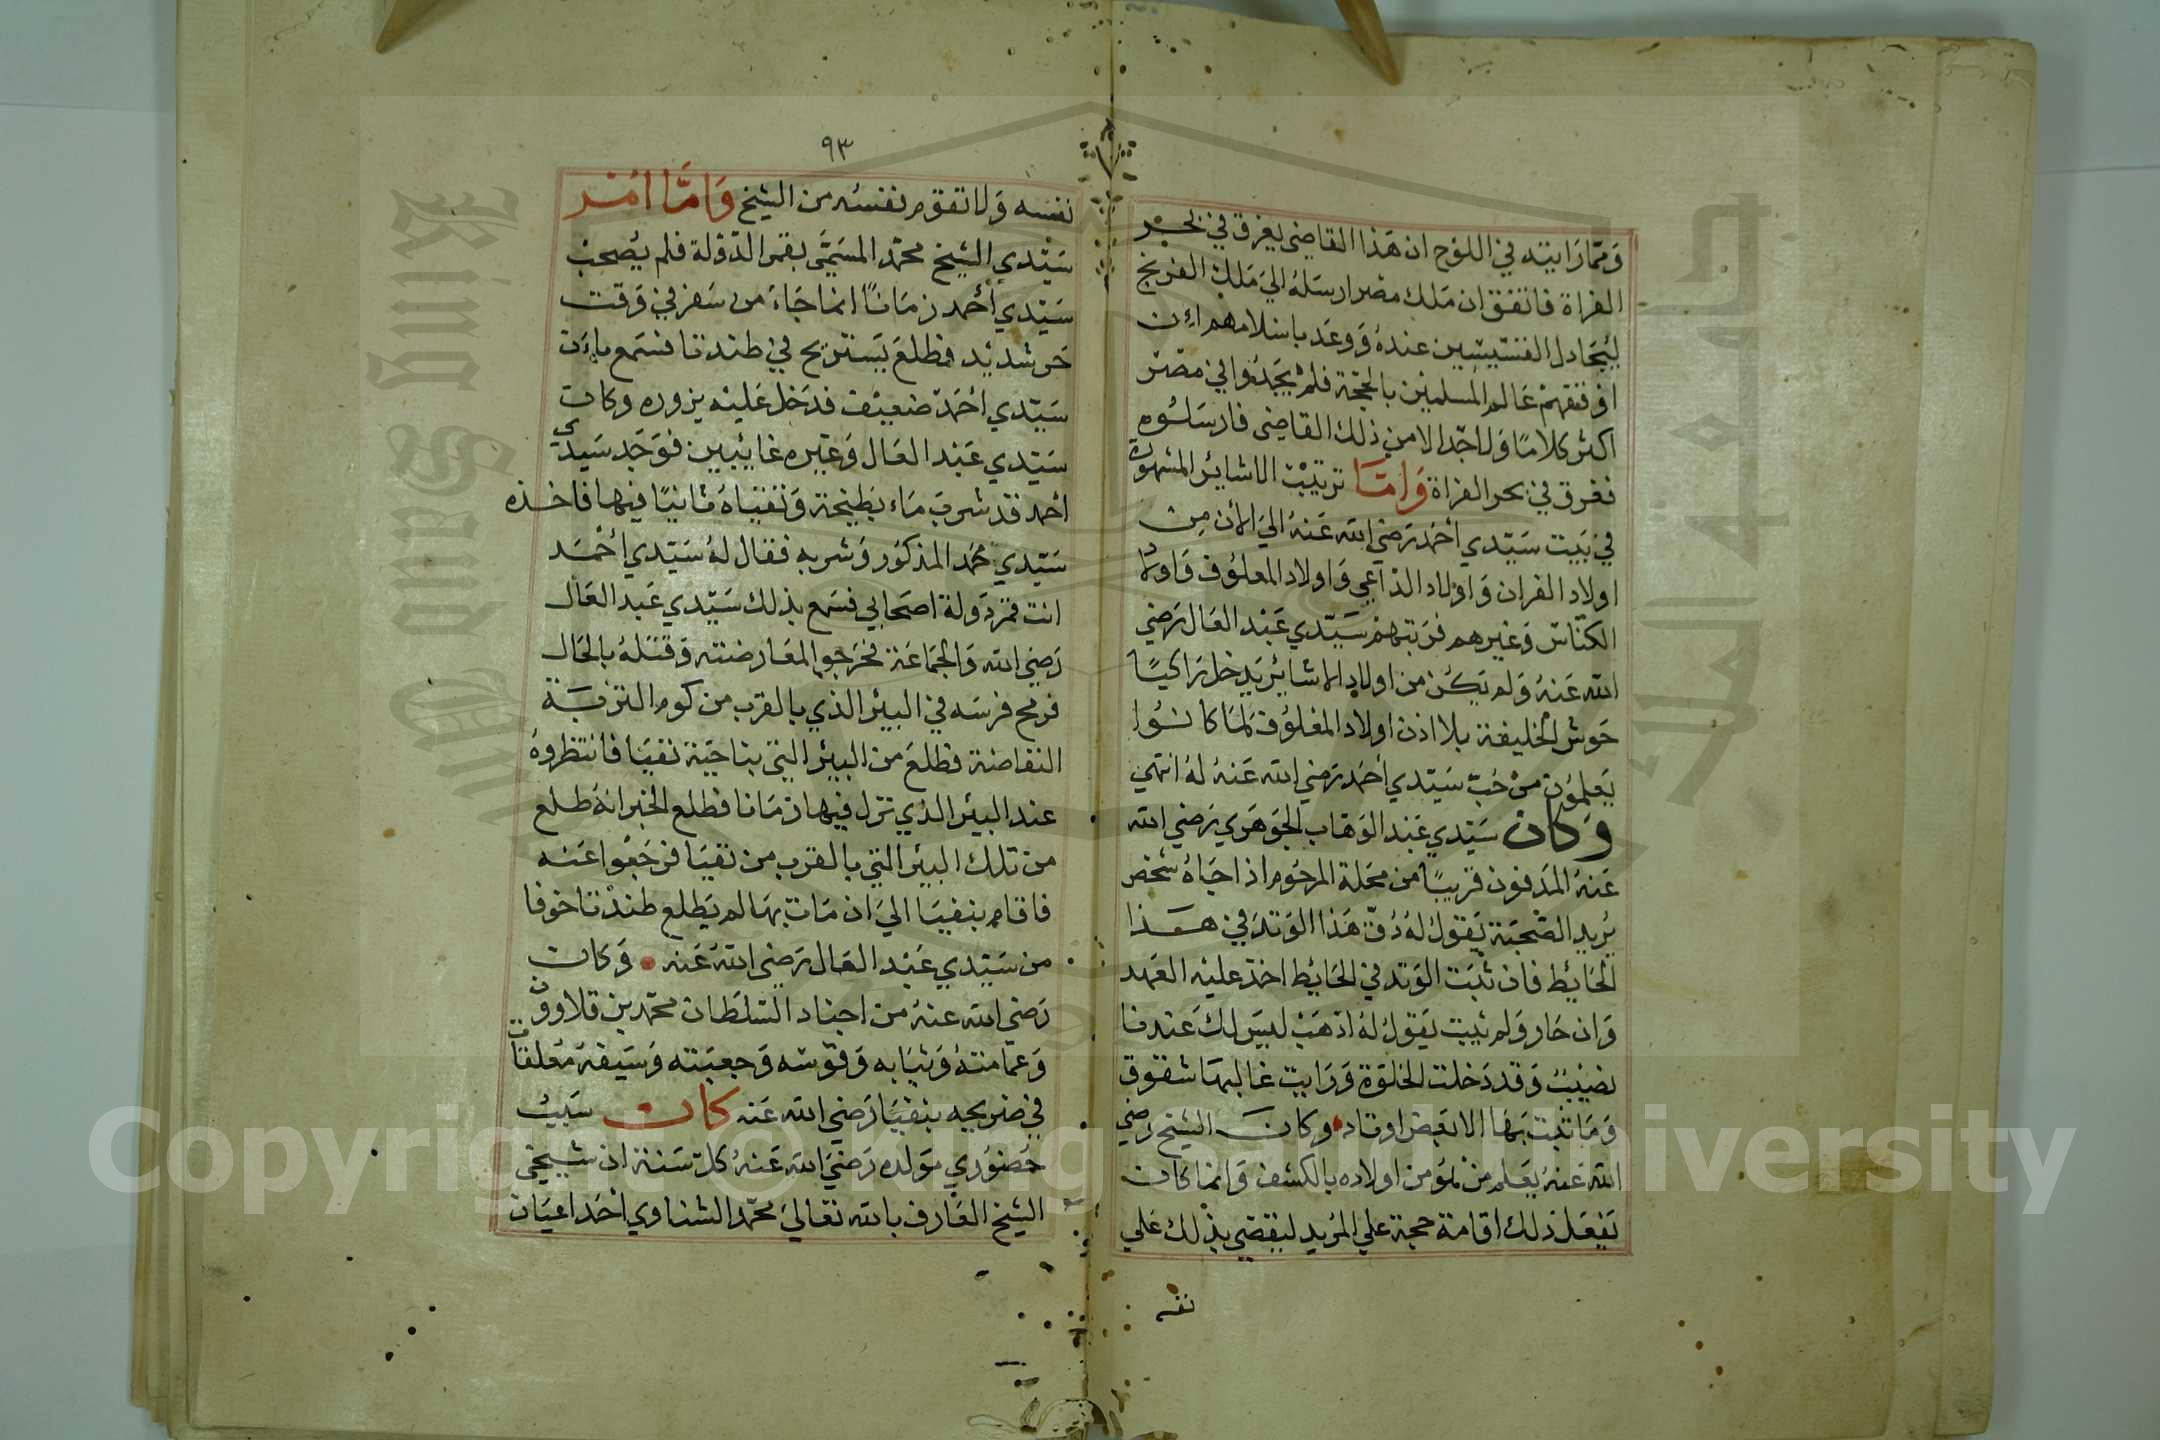 ومما رايته في اللوح ان هذا القاضي يغرق في بحر
الفراة فاتفق ان ملك مصر ارسله الي ملك الفرنج
ليجادل القسيسين عنده ووعد باسلامهم اءن
اوقفهم عالم المسلمين بالحجة فلم يجدوا في مصر
اكثر كلاما ولا جدالا من ذلك القاضي فارسلوه
فغرق في بحر الفراة واما ترتيب الاشاير المشهورة
في بيت سيدي أحمد رضي الله عنه الي الأن من
اولاد الفران واولاد الداعي واولاد المعلوف واولاد
الكناس وغيرهم فرتبهم سيدي عبد العال رضي
الله عنه ولم يكن من اولاد الاشاير يدخل راكبا
حوش الخليفة بلا اذن اولاد المعلوف لما كانوا
يعلمون من حب سيدي احمد رضي الله عنه له انتهي
وكان سيدي عبد الوهاب الجوهري رضي الله
عنه المدفون قريبا من محلة المرحوم اذا جاه شخص
يريد الصحبة يقول له دق هذا الوتد في هذا
الحايط فان ثبت الوتد في الحايط اخذ عليه العهد
وان خار ولم يثبت يقول له اذهب ليس لك عندنا
نصيب وقد دخلت الخلوة ورايت غالبها شقوق
وما ثبت بها الا بعض اوتاد وكان الشيخ رضي
الله عنه يعلم من هو من اولاده بالكشف وانما كان
يفعل ذلك اقامة حجة علي المريد ليقضي بذلك علي
نفسه
٩٣
نفسه ولا تقوم نفسه من الشيخ واما امر
سيدي الشيخ محمد المسمي بقمر الدولة فلم يصحب
سيدي أحمد زمانا انما جاء من سفر في وقت
حر شديد فطلع يستريح في طندتا فسمع بان
سيدي احمد ضعيف فدخل عليه يزوره وكان
سيدي عبد العال وغيره غائبين فوجد سيدي
احمد قد شرب ماء بطيخة وتقياه ثانيا فيها فاخذه
سيدي محمد المذكور وشربه فقال له سيدي احمد
انت قمر دولة اصحابي فسمع بذلك سيدي عبد العال
رضي الله والجماعة فخرجوا لمعارضته وقتله بالحال
فرمح فرسه في البير الذي بالقرب من كوم التربة
النفاضة فطلع من البير التي بناحية نفيا فانتظروه
عند البير الذي نزل فيها زمانا فطلع الخبر انه طلع
من تلك البير التي بالقرب من نفيا فرجعوا عنه
فاقام بنفيا الي ان مات بها لم يطلع طندتا خوفا
من سيدي عبد العال رضي الله عنه وكان
رضي الله عنه من اجناد السلطان محمد بن قلاوون
وعمامته وثيابه وقوسه وجعبته وسيفه معلقات
في ضريحه بنفيا رضي الله عنه كان سبب
حضوري مولده رضي الله عنه كل سنة ان شيخي
الشيخ العارف بالله تعالي محمد الشناوي احد اعيان
Copyright © King Saud University